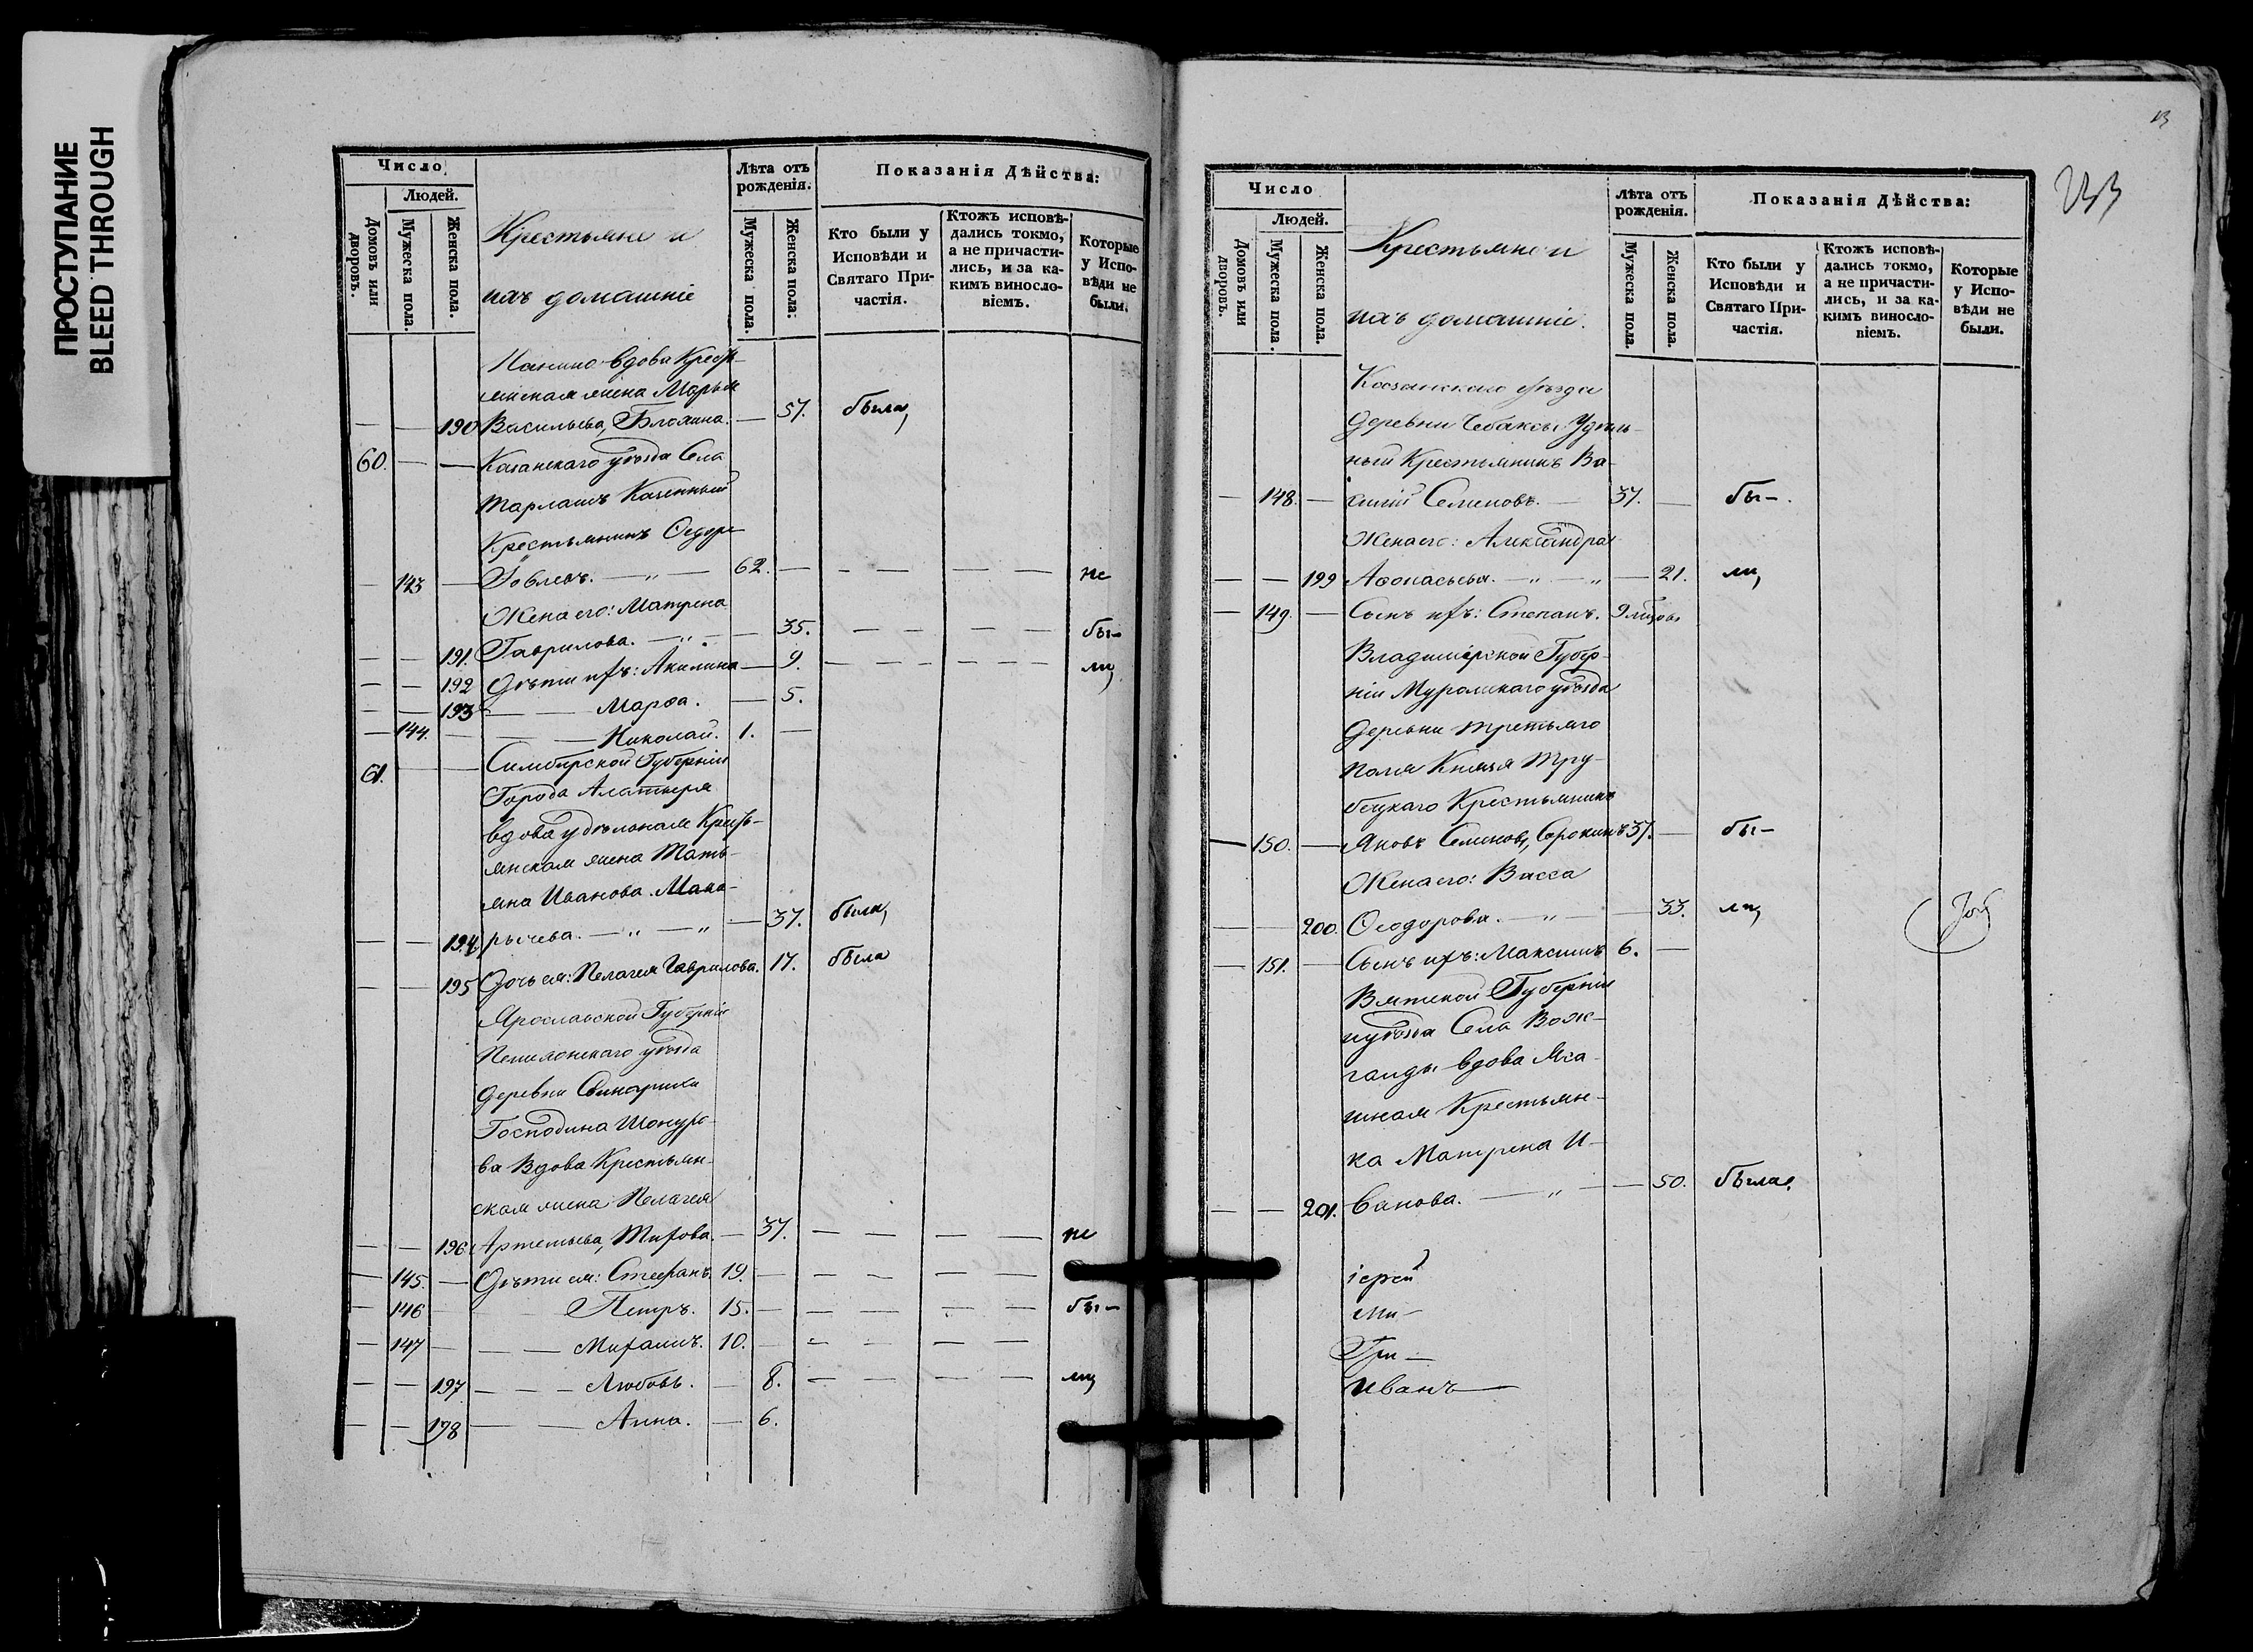 ПРОСТУПАНИЕ
BLEED THROUGH
Число
Людей.
Домовъ или дворовъ.
Мужеска пола.
Женска пола.
Крестьяне и
ихъ домашніе
Лѣта отъ рожденія.
Мужеска пола.
Женска пола:
Показанія Дѣйства:
Кто были у Исповѣди и Святаго Причастія.
Ктожъ исповѣдались токмо, а не причастились, и за какимъ винословіемъ.
Которые у Исповѣди не были.
вдова Кресть-
янская жена Марья
— — 190 Васильева, — 57. была,
60. — — Казанскаго уѣзда Села
Тарлашъ Казенный
Крестьянинъ Ѳедоръ
— 143 — 62. — — — — — не
Жена его: Матрена
— — 191. Гаврилова. — „ — — 35. — — — — бы-
— — 192 Дѣти ихъ: Акилина — 9. — — — — — ли,
— — 193 — — Марѳа. — 5.
— 144. — — — Николай. 1. —
61. — — Симбирской Губерніи
Города Алатыря
вдова удѣльная Кресть-
янская жена Тать-
яна Иванова Мака-
— — 194. рычева. — „ — „ — 37. была,
— — 195 Дочь ея: Пелагея Гаврилова. 17. была
Ярославской Губерніи
уѣзда
Деревни
Господина
ва Вдова Крестьян-
ская жена Пелагея
— — 196. Артемьева, — 37. — — — — не
— 145. — Дѣти ея: Стефанъ. 19. — — — — —
— 146 Петръ. 15. — — — — — бы-
— 147 — — — Михаилъ. 10. — — — —
— — 197 — — — Любовь. — 8. — — — — ли,
— — 198 — — Анна. — 6.
13
Число
Людей.
Домовъ или дворовъ.
Мужеска пола.
Женска пола.
Крестьяне и
ихъ домашніе.
Лѣта отъ рожденія.
Мужеска пола.
Женска пола.
Показанія Дѣйства:
Кто были у Исповѣди и Святаго Причастія.
Ктожъ исповѣдались токмо, а не причастились, и за какимъ винословіемъ.
Которые у Исповѣди не были.
Казанскаго уѣзда
Деревни Чебаксы Удѣль-
ный Крестьянинъ Ва-
— 148. — силій Семеновъ. — 37. — бы-
Жена его: Александра
— — 199 Аѳонасьева. — „ — „ — 21. ли,
— 149. — Сынъ ихъ: Степанъ. 9
Владимірской Губер-
ніи Муромскаго уѣзда
Деревни Третьяго
поля Князя Тру-
бецкаго Крестьянинъ
— 150. — Яковъ Семеновъ, Сорокинъ 37. — бы-
Жена его: Васса
— — 200. Ѳеодорова. — „ — — 33. ли,
— 151. — Сынъ ихъ: Максимъ 6. —
Вятской Губерніи
уѣзда Села Вож-
галды вдова Яса-
шная Крестьян-
ка Матрена И-
— — 201. ванова. — „ — — 50. была.
іерей
Ми-
Гри-
Иванъ